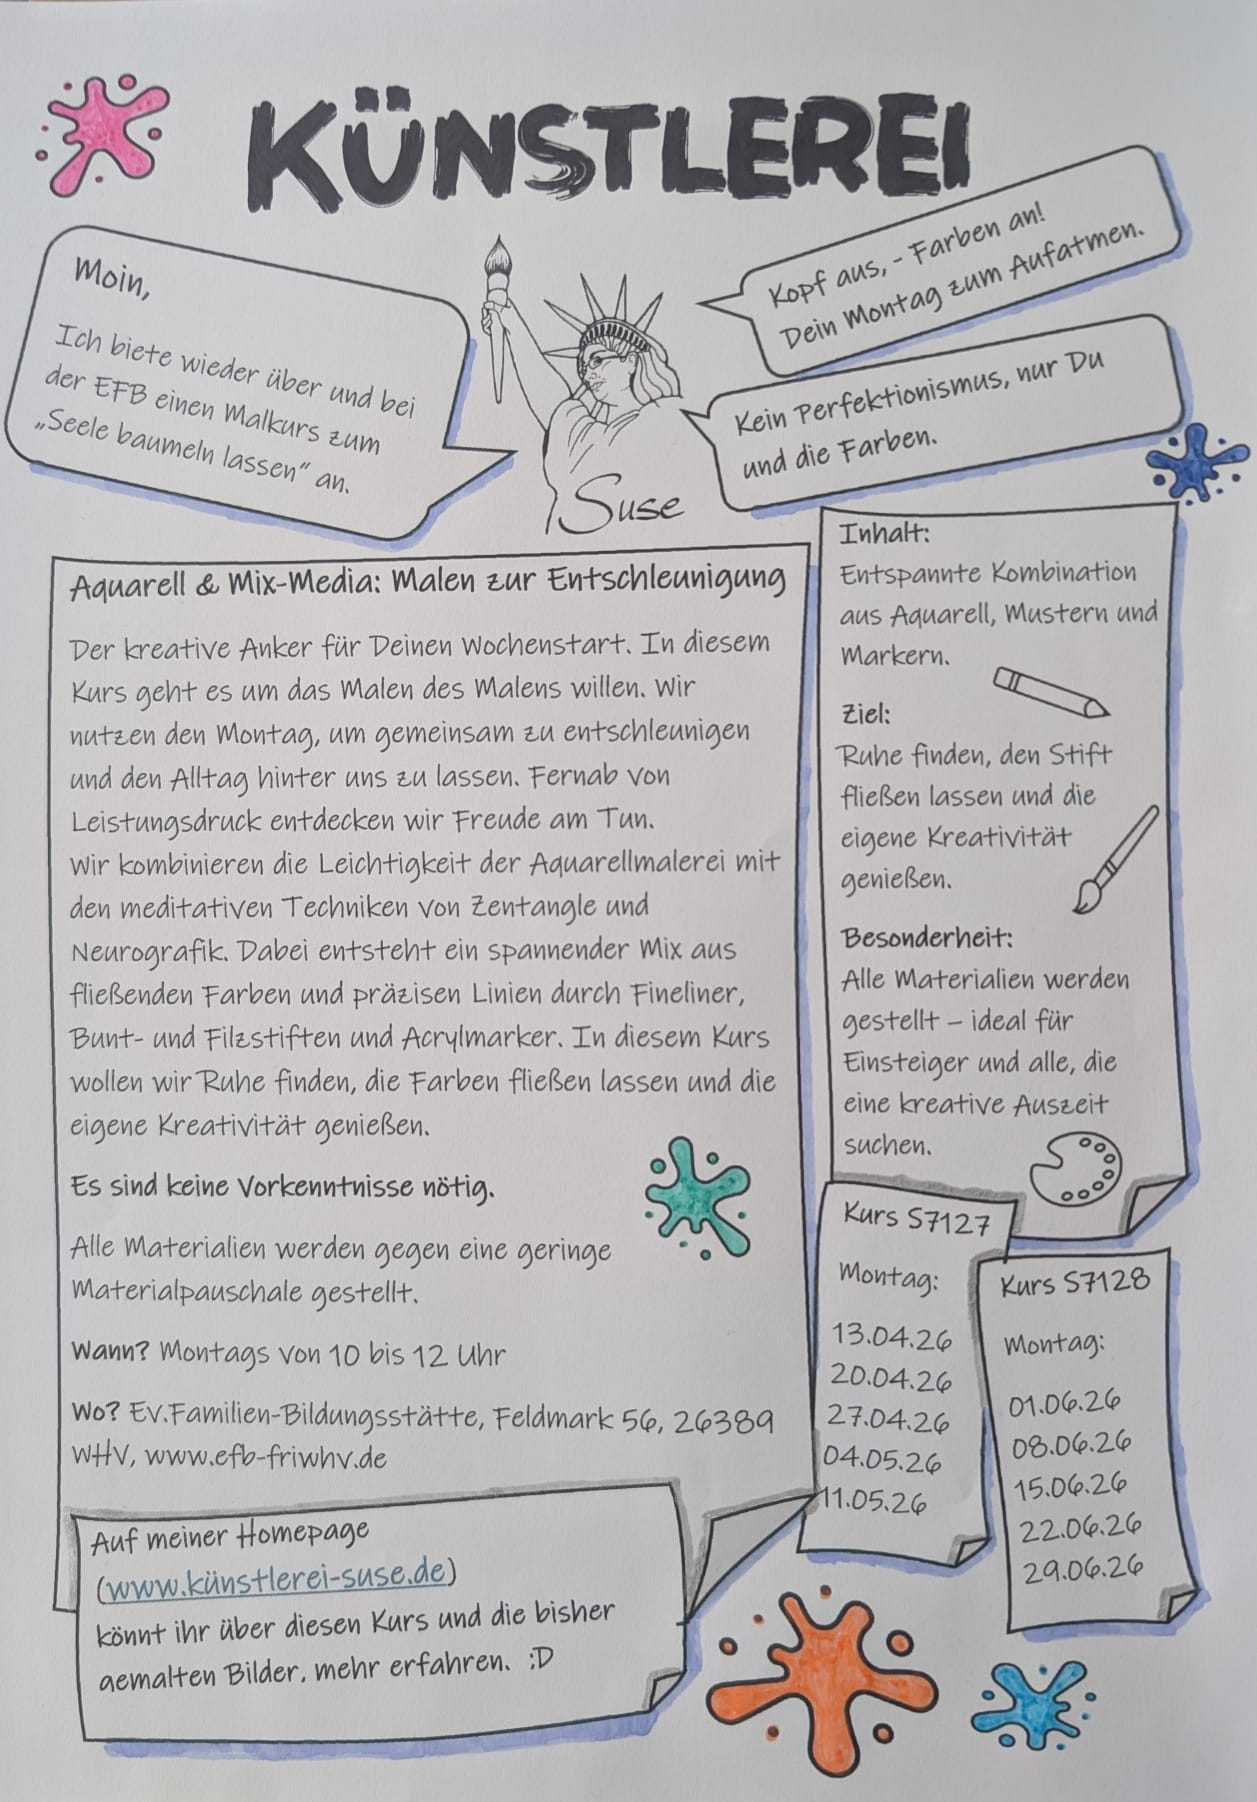 KÜNSTLEREI
Moin,
Ich biete wieder über und bei
der EFB einen Malkurs zum
„Seele baumeln lassen“ an.
Kopf aus, - Farben an!
Dein Montag zum Aufatmen.
Kein Perfektionismus, nur Du
und die Farben.
Suse
Aquarell & Mix-Media: Malen zur Entschleunigung
Der kreative Anker für Deinen Wochenstart. In diesem
Kurs geht es um das Malen des Malens willen. Wir
nutzen den Montag, um gemeinsam zu entschleunigen
und den Alltag hinter uns zu lassen. Fernab von
Leistungsdruck entdecken wir Freude am Tun.
Wir kombinieren die Leichtigkeit der Aquarellmalerei mit
den meditativen Techniken von Zentangle und
Neurografik. Dabei entsteht ein spannender Mix aus
fließenden Farben und präzisen Linien durch Fineliner,
Bunt- und Filzstiften und Acrylmarker. In diesem Kurs
wollen wir Ruhe finden, die Farben fließen lassen und die
eigene Kreativität genießen.
Es sind keine Vorkenntnisse nötig.
Alle Materialien werden gegen eine geringe
Materialpauschale gestellt.
Wann? Montags von 10 bis 12 Uhr
Wo? Ev.Familien-Bildungsstätte, Feldmark 56, 26389
WHV, www.efb-friwhv.de
Auf meiner Homepage
(www.künstlerei-suse.de)
könnt ihr über diesen Kurs und die bisher
gemalten Bilder, mehr erfahren. :D
Inhalt:
Entspannte Kombination
aus Aquarell, Mustern und
Markern.
Ziel:
Ruhe finden, den Stift
fließen lassen und die
eigene Kreativität
genießen.
Besonderheit:
Alle Materialien werden
gestellt – ideal für
Einsteiger und alle, die
eine kreative Auszeit
suchen.
Kurs S7127
Montag:
13.04.26
20.04.26
27.04.26
04.05.26
11.05.26
Kurs S7128
Montag:
01.06.26
08.06.26
15.06.26
22.06.26
29.06.26